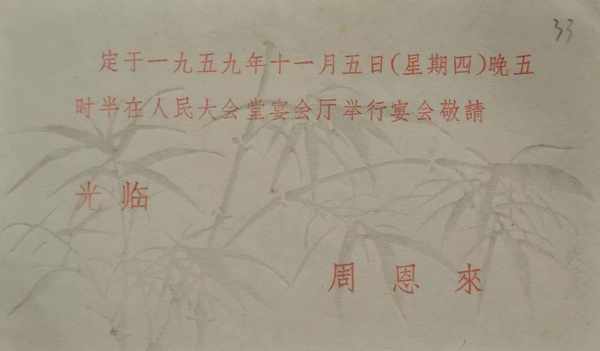 33
定于一九五九年十一月五日(星期四)晚五
时半在人民大会堂宴会厅举行宴会敬請
光临
周恩來